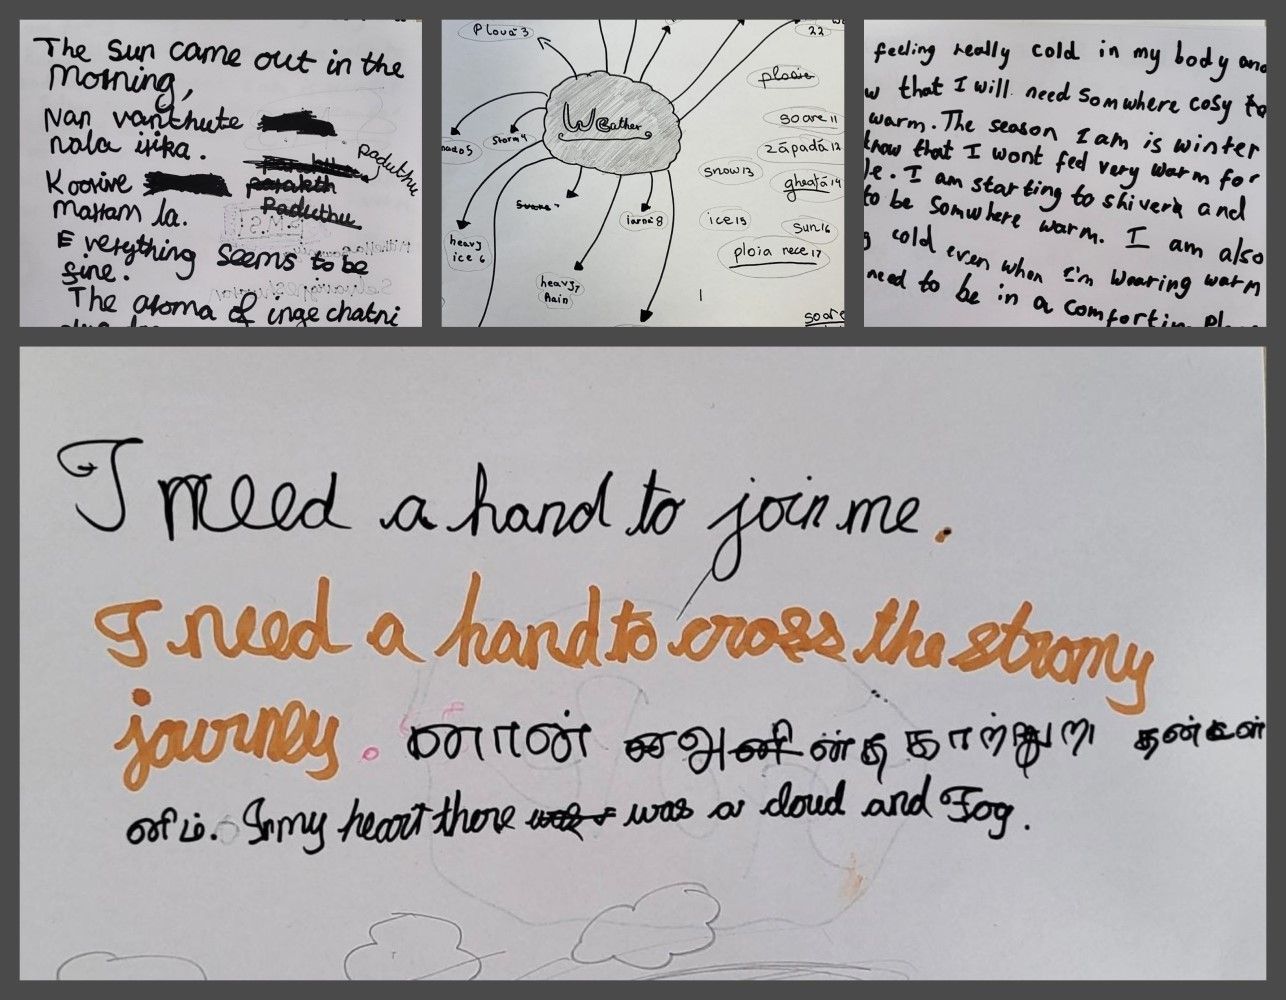 The Sun came out in the
Morning,
Nan vanthute
nala irika.
paduthu
Koorive
Mattam la.
Everything seems to be
fine.
The aroma of inge chatni
Plouă 3
22
ploaie
Weather
soare 11
Storm 4
nado 5
zăpadă 12
snow 13
gheață 14
iarnă 8
ice 15
Sun 16
heavy
ice 6
ploia rece 17
heavy 7
Rain
soare
feeling really cold in my body and
w that I will need somwhere cosy to
warm. The season I am is winter
know that I wont feel very warm for
le. I am starting to shiver and
to be somwhere warm. I am also
g cold even when I'm wearing warm
need to be in a comfortin place
I need a hand to join me.
I need a hand to cross the stromy
journey. னான்
னிம். In my heart there was a cloud and Fog.